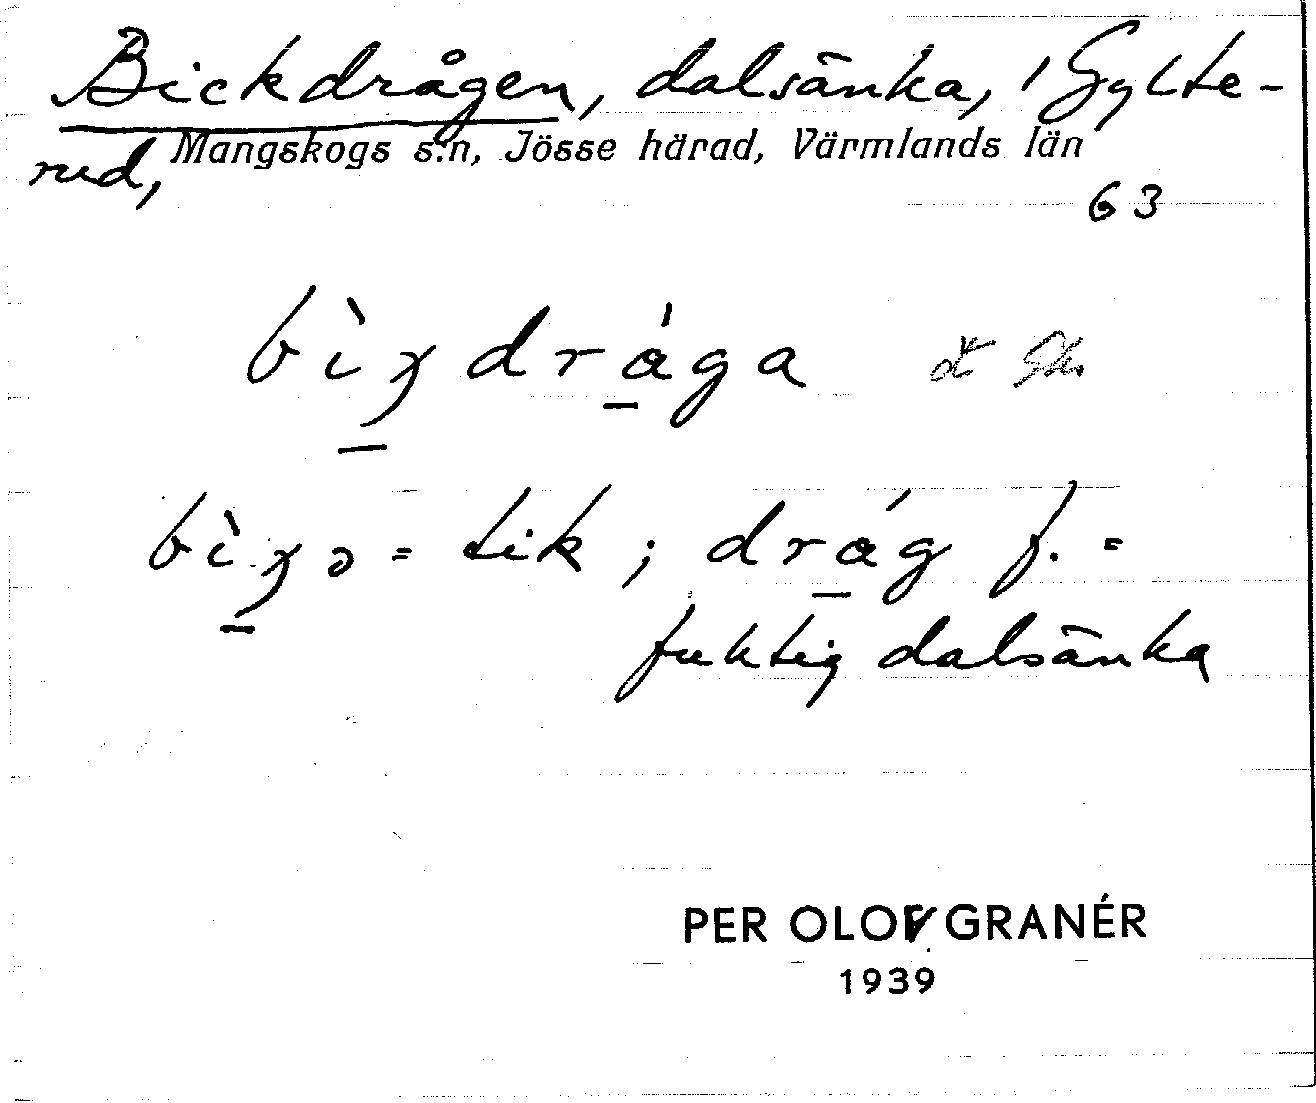 Bickdrågen, dalsänka, i Gylte-
rud, Mangskogs s:n, Jösse härad, Värmlands län
63
bìʒdrága
bìʒə = tik ; dråg f. =
fuktig dalsänka
PER OLOV GRANÉR
1939